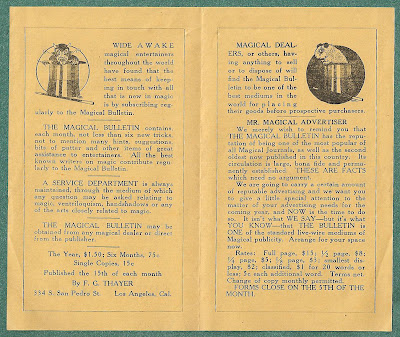 WIDE AWAKE
magical entertainers
throughout the world
have found that the
best means of keep-
ing in touch with all
that is new in magic
is by subscribing reg-
ularly to the Magical Bulletin.
THE MAGICAL BULLETIN contains
each month not less than six new tricks
not to mention many hints, suggestions,
bits of patter and other items of great
assistance to entertainers. All the best
known writers on magic contribute regu-
larly to the Magical Bulletin.
A SERVICE DEPARTMENT is always
maintained, through the medium of which
any question may be asked relating to
magic, ventriloquism, handshadows or any
of the arts closely related to magic.
THE MAGICAL BULLETIN may be
obtained from any magical dealer or direct
from the publisher.
The Year, $1.50; Six Months, 75c
Single Copies, 15c
Published the 15th of each month
By F. G. THAYER
334 S. San Pedro St. Los Angeles, Cal.
MAGICAL DEAL-
ERS, or others, hav-
ing anything to sell
or to dispose of will
find the Magical Bul-
letin to be one of the
best mediums in the
world for placing
their goods before prospective purchasers.
MR. MAGICAL ADVERTISER
We merely wish to remind you that
THE MAGICAL BULLETIN has the repu-
tation of being one of the most popular of
all Magical Journals, as well as the second
oldest now published in this country. Its
circulation is large, bona fide and perma-
nently established. THESE ARE FACTS
which need no argument.
We are going to carry a certain amount
of reputable advertising and we want you
to give a little special attention to the
matter of your advertising needs for the
coming year, and NOW is the time to do
so. It isn't what WE SAY—but it's what
YOU KNOW—that THE BULLETIN is
ONE of the standard live-wire mediums of
Magical publicity. Arrange for your space
now.
Rates: Full page, $15; ½ page, $8;
¼ page, $5; ⅛ page, $3; smallest dis-
play, $2; classified, $1 for 20 words or
less; 5c each additional word. Terms net.
Change of copy monthly if permitted.
FORMS CLOSE ON THE 5TH OF THE
MONTH.